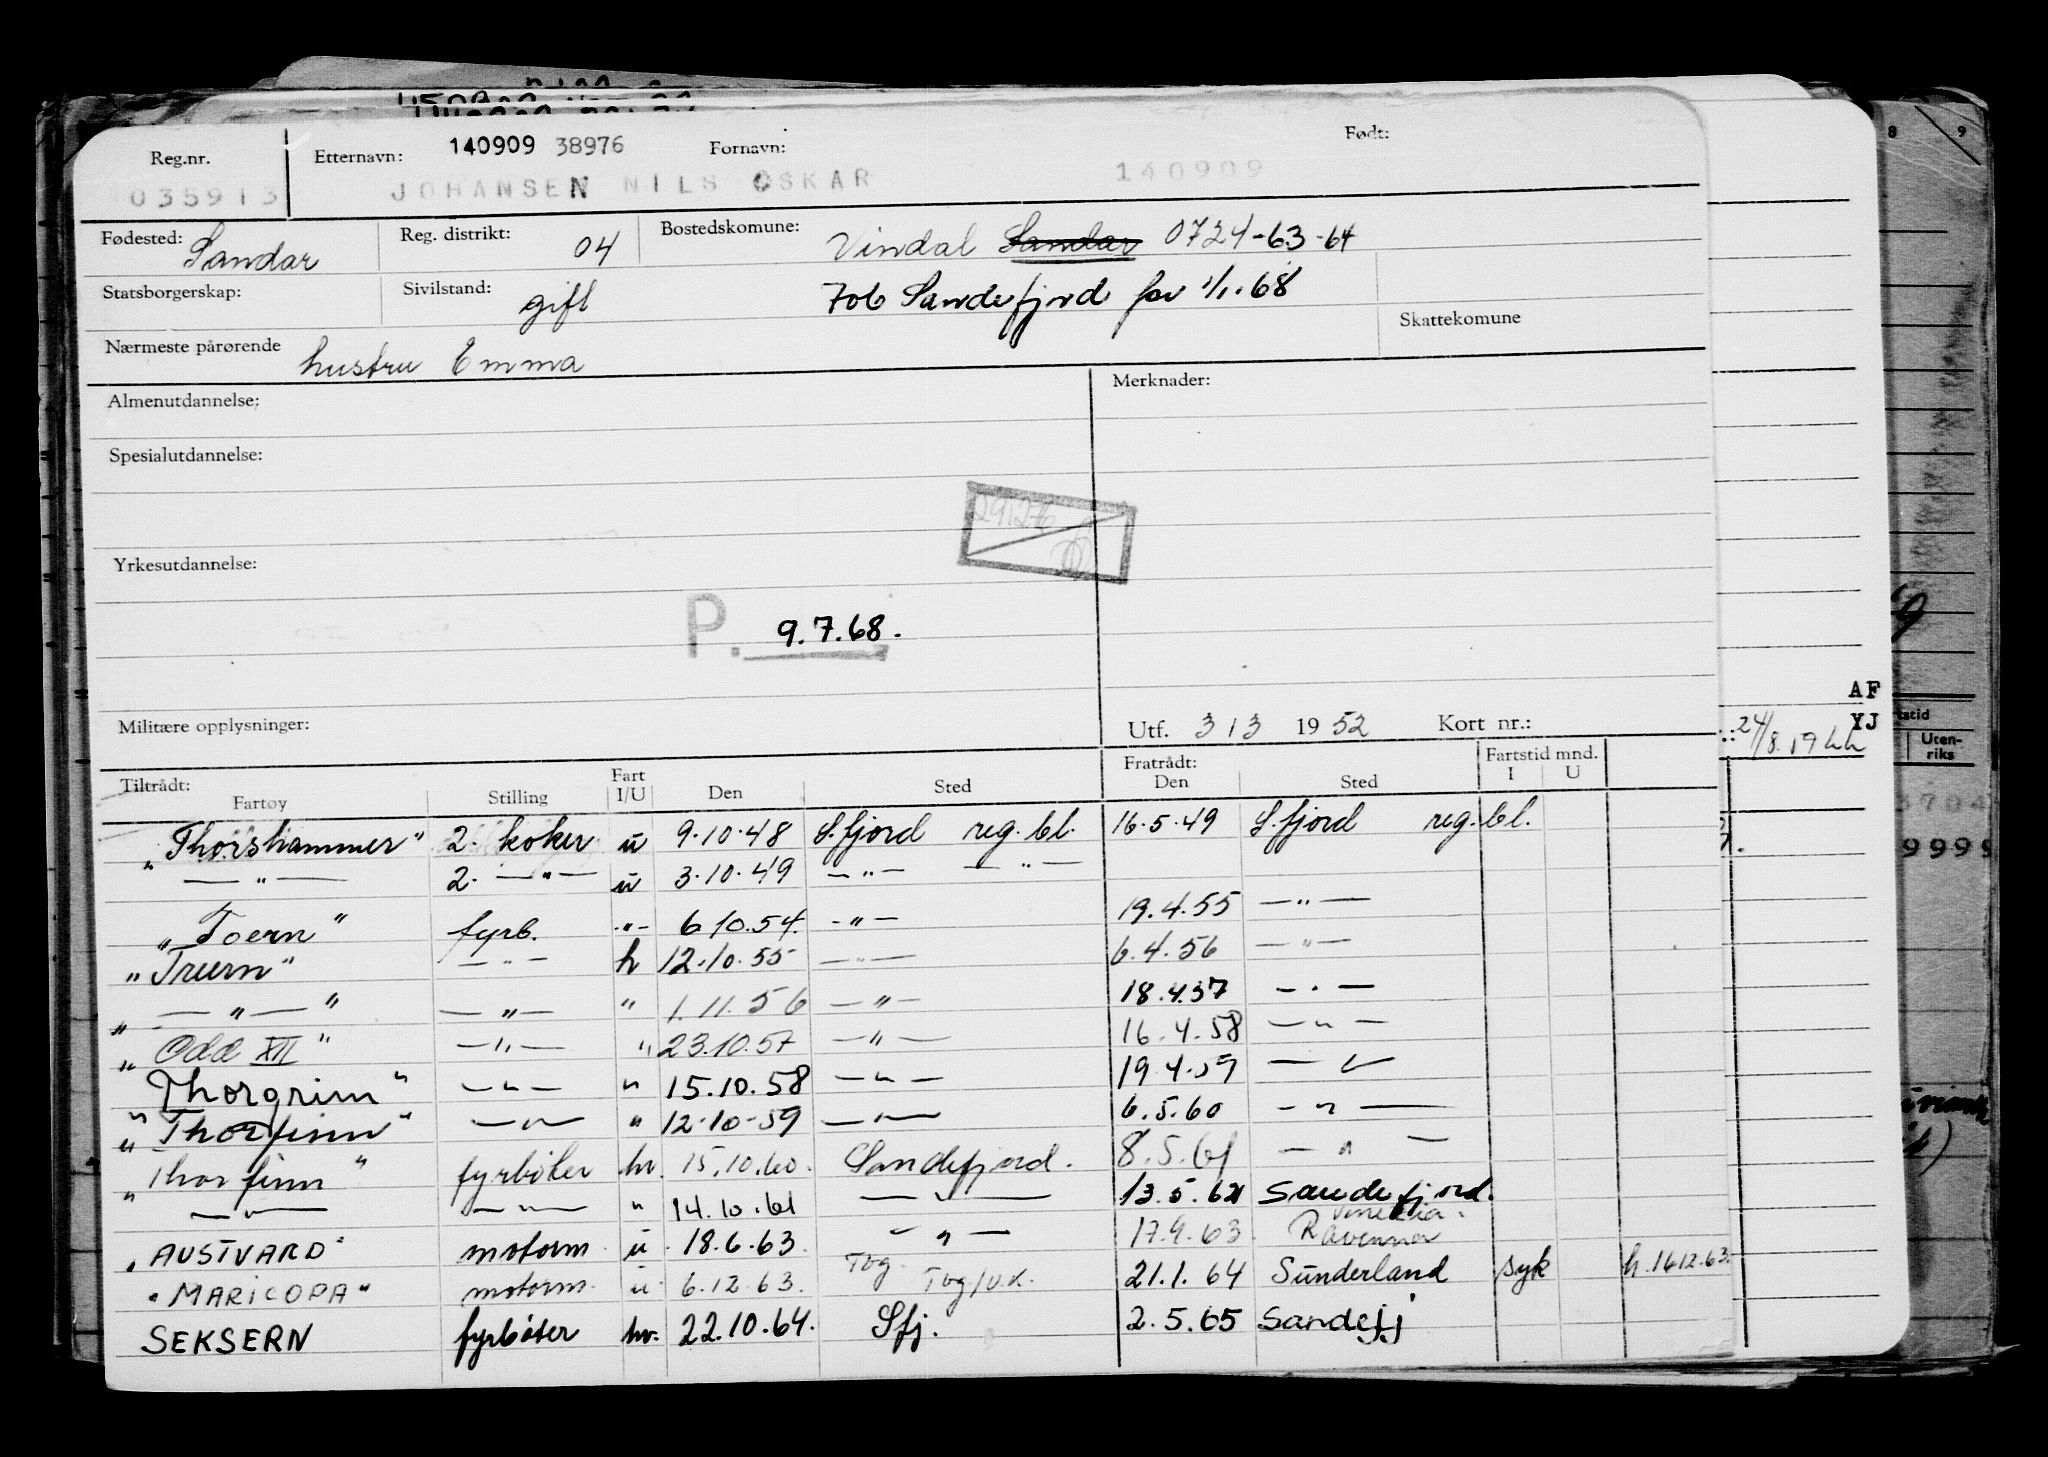 Reg.nr. Etternavn: 140909 38976 Fornavn: Født:
035913 JOHANSEN NILS OSKAR 140909
Fødested: Sandar Reg. distrikt: 04 Bostedskomune: Vindal Sandar 0724-63-64
Statsborgerskap: Sivilstand: gift 706 Sandefjord for 1/1.68
Skattekomune
Nærmeste pårørende hustru Emma
Almenutdannelse: Merknader:
Spesialutdannelse:
Yrkesutdannelse:
P. 9.7.68.
Militære opplysninger: Utf. 3 / 3 1952 Kort nr.:
Tiltrådt: Fartøy Stilling Fart I/U Den Sted Fratrådt: Den Sted Fartstid mnd. I U
"Thorshammer" 2. koker u 9.10.48 S.fjord reg. bl. 16.5.49 S.fjord reg. bl.
— " — 2. — " — u 3.10.49 — " — — " —
"Toern" fyrb. - " - 6.10.54. - " - 19.4.55 — " —
"Truern" — " — h 12.10.55 — " — 6.4.56 — " —
" — " — " — " — " 1.11.56 — " — 18.4.57 — " —
"Odd XII" — " — " 23.10.57 — " — 16.4.58 — " —
"Thorgrim" — " — " 15.10.58 — " — 19.4.59 — " —
"Thorfinn" — " — " 12.10.59 — " — 6.5.60 — " —
"Thorfinn" fyrbøter hv. 15.10.60. Sandefjord. 8.5.61 — " —
— " — — " — " 14.10.61 — " — 13.5.62 Sandefjord.
"AUSTVARD" motorm. u. 18.6.63. — " — 17.9.63. Venezia. Ravenna
"MARICOPA" motorm. u. 6.12.63. Tbg. Tbg/U.K. 21.1.64 Sunderland syk h. 16.12.63.
SEKSERN fyrbøter hv. 22.10.64. Sfj. 2.5.65 Sandefj
AF
YJ
24/8.19
Utenriks
9999
8 9